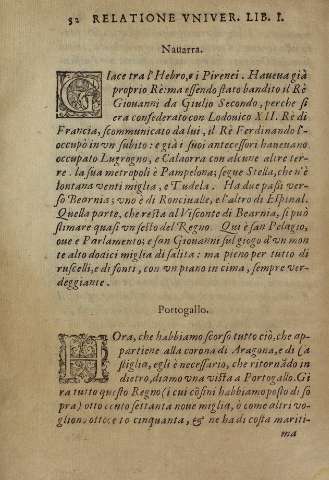 52 RELATIONE VNIVER. LIB. I.
Nauarra.
Giace tra l'Hebro, e i Pirenei. Haueua già
proprio Rè: ma essendo stato bandito il Rè
Giouanni da Giulio Secondo, perche si
era confederato con Lodouico XII. Rè di
Francia, scommunicato da lui, il Rè Ferdinando l'
occupò in vn subito: e già i suoi antecessori haueuano
occupato Lugrogno, e Calaorra con alcune altre ter-
re. la sua metropoli è Pampelona; segue Stella, che n'è
lontana venti miglia, e Tudela. Ha due passi ver-
so Beornia; vno è di Ronciualle, e l'altro di Espinal.
Quella parte, che resta al Visconte di Bearnia, si può
stimare quasi vn sesto del Regno. Qui è san Pelagio,
oue è Parlamento; e san Giouanni sul giogo d'vn mon
te alto dodici miglia di salita: ma pieno per tutto di
ruscelli, e di fonti, con vn piano in cima, sempre ver-
deggiante.
Portogallo.
HOra, che habbiamo scorso tutto ciò, che ap-
partiene alla corona di Aragona, e di Ca
stiglia, egli è necessario, che ritornãdo in
dietro, diamo vna vista a Portogallo. Gi
ra tutto questo Regno (i cui cõfini habbiamo posto di so
pra) otto cento settanta noue miglia, ò come altri vo-
gliono, otto ce to cinquanta, & ne ha di costa mariti-
ma